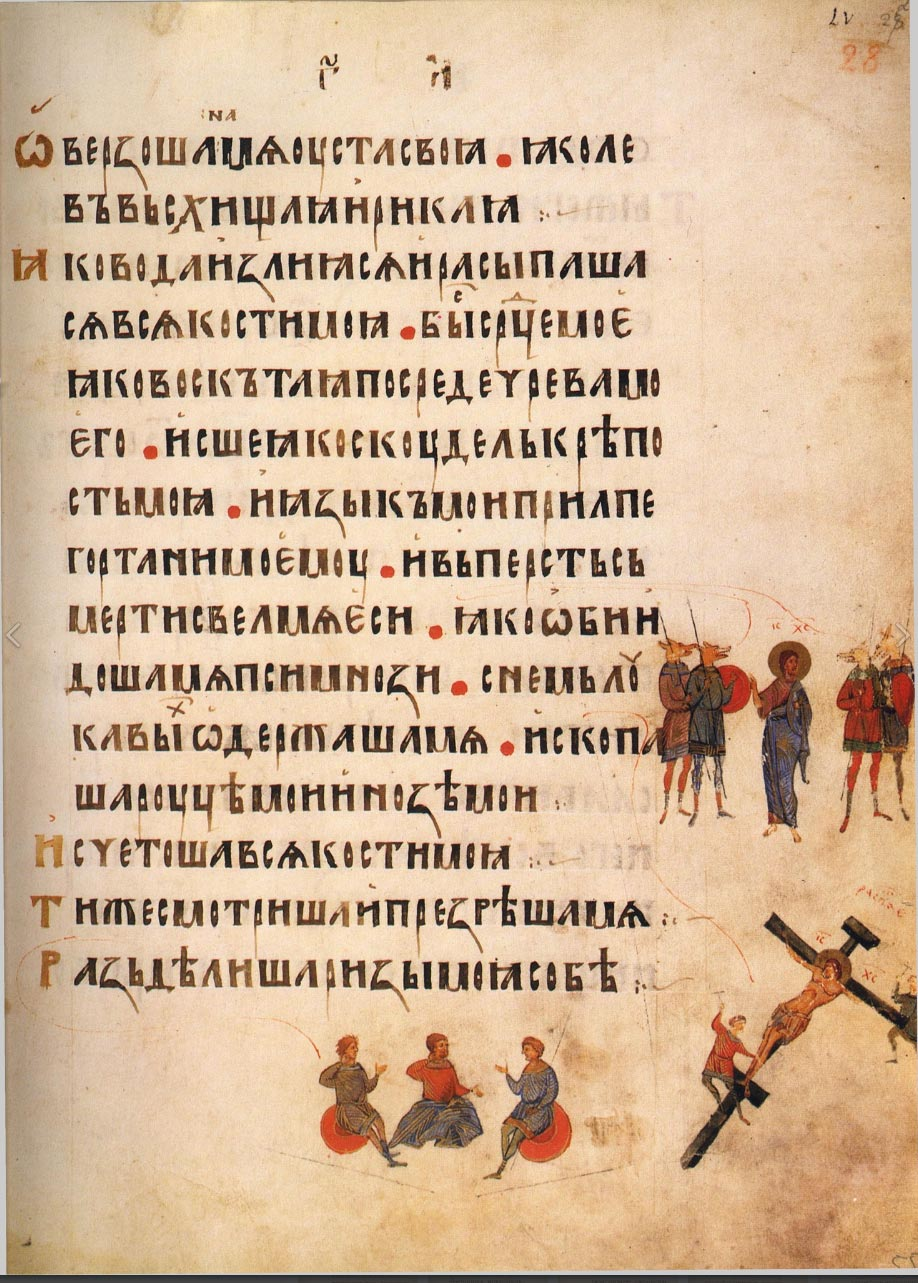 28
г҃ и
на
Ѿверзошамѧоустасвоꙗ • ꙗколе
въвьсхищаꙗирикаꙗ :~
Ꙗководаизлиꙗсѧирасыпаша
сѧвсѧкостимоꙗ • быⷭ҇срⷣцемое
ꙗковоскътаꙗпосредечревамо
его • исшеꙗкоскоуделькрѣпо
стьмоꙗ • иꙗзыкъмоиприлпе
гортанимоемоу • ивьперстьсь
мертисвелмѧеси • ꙗкоѡбии
ІС ХС
дошамѧпсимнози • снемьлоу
кавыⷯѡдержашамѧ • ископа
шароуцѣмоиинозѣмои :~
Исчетошавсѧкостимоꙗ :~
Тижесмотришаипрезрѣшамѧ :~
Разьдѣлишаризымоꙗсобѣ :~
ІС ХС